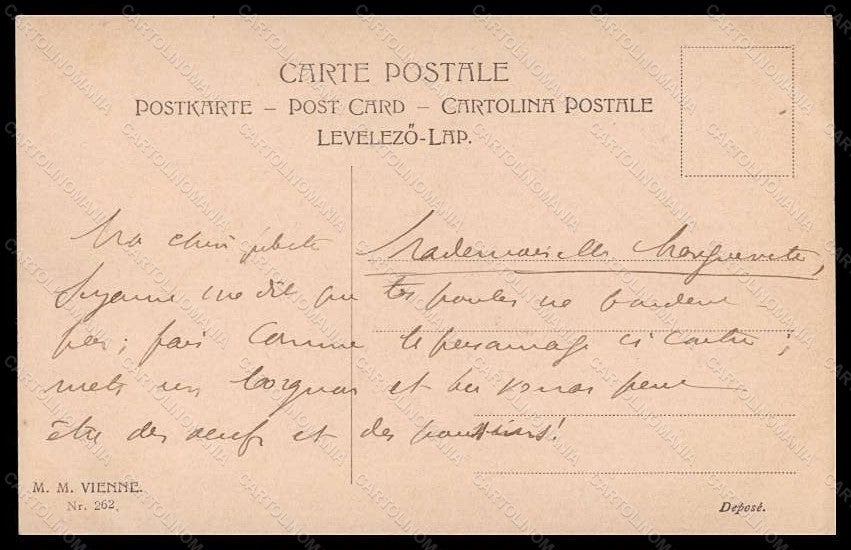 CARTE POSTALE
POSTKARTE – POST CARD – CARTOLINA POSTALE
LEVELEZŐ-LAP.
Mademoiselle Marguerite,
Ma chère petite
Suzanne me dit que tes poules ne pondent
pas ; fais comme le personnage ci contre ;
mets un lorgnon et tu verras peut
être des oeufs et des poussins !
M. M. VIENNE.
Nr. 262.
Deposé.
CARTOLINOMANIA